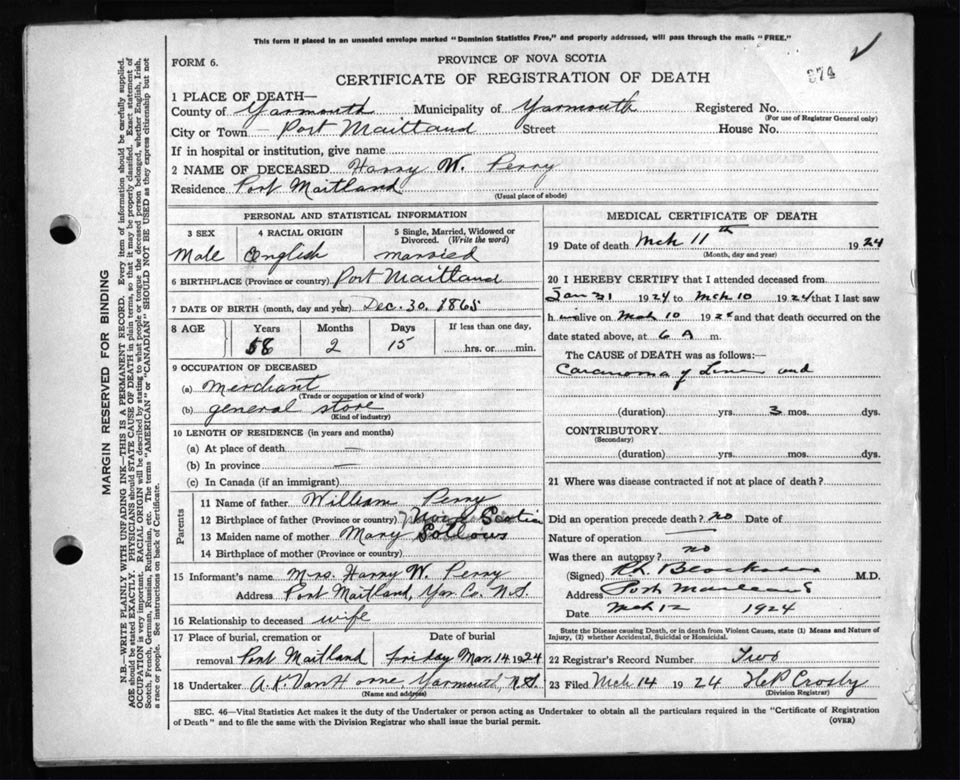 This form if placed in an unsealed envelope marked "Dominion Statistics Free," and properly addressed, will pass through the mails "FREE."
FORM 6.
PROVINCE OF NOVA SCOTIA
CERTIFICATE OF REGISTRATION OF DEATH
374
1 PLACE OF DEATH—
County of Yarmouth Municipality of Yarmouth Registered No.
(For use of Registrar General only)
City or Town – Port Maitland Street House No.
If in hospital or institution, give name
2 NAME OF DECEASED Harry W. Perry
Residence Port Maitland
(Usual place of abode)
PERSONAL AND STATISTICAL INFORMATION
3 SEX 4 RACIAL ORIGIN 5 Single, Married, Widowed or Divorced. (Write the word)
Male English married
6 BIRTHPLACE (Province or country) Port Maitland
7 DATE OF BIRTH (month, day and year) Dec. 30. 1865
8 AGE Years Months Days If less than one day,
58 2 15 hrs. or min.
9 OCCUPATION OF DECEASED
(a) merchant
(Trade or occupation or kind of work)
(b) general store
(Kind of industry)
10 LENGTH OF RESIDENCE (in years and months)
(a) At place of death —
(b) In province —
(c) In Canada (if an immigrant)
Parents
11 Name of father William Perry
12 Birthplace of father (Province or country) Nova Scotia
13 Maiden name of mother Mary Sollows
14 Birthplace of mother (Province or country)
15 Informant's name Mrs. Harry W. Perry
Address Port Maitland, Yar. Co. N.S.
16 Relationship to deceased wife
17 Place of burial, cremation or removal Port Maitland
Date of burial
Friday Mar. 14. 1924
18 Undertaker A. K. VanHorne Yarmouth, N.S.
(Name and address)
MEDICAL CERTIFICATE OF DEATH
19 Date of death Mch 11th 1924
(Month, day and year)
20 I HEREBY CERTIFY that I attended deceased from
Jan 31 1924 to Mch 10 1924 that I last saw
h im alive on Mch 10 1924 and that death occurred on the
date stated above, at 6 A m.
The CAUSE of DEATH was as follows:—
Carcinoma of Liver and
(duration) yrs. 3 mos. dys.
CONTRIBUTORY
(Secondary)
(duration) yrs. mos. dys.
21 Where was disease contracted if not at place of death?
Did an operation precede death? no Date of
Nature of operation —
Was there an autopsy? no
(Signed) M.D.
Address Port Maitland
Date Mch 12 1924
State the Disease causing Death, or in death from Violent Causes, state (1) Means and Nature of
Injury, (2) whether Accidental, Suicidal or Homicidal.
22 Registrar's Record Number Two
23 Filed Mch 14 1924 Crosby
(Division Registrar)
SEC. 46—Vital Statistics Act makes it the duty of the Undertaker or person acting as Undertaker to obtain all the particulars required in the "Certificate of Registration
of Death" and to file the same with the Division Registrar who shall issue the burial permit.
(OVER)
MARGIN RESERVED FOR BINDING
N.B.—WRITE PLAINLY WITH UNFADING INK—THIS IS A PERMANENT RECORD. Every item of information should be carefully supplied.
AGE should be stated EXACTLY. PHYSICIANS should STATE CAUSE OF DEATH in plain terms, so that it may be properly classified. Exact statement of
OCCUPATION is very important. RACIAL ORIGIN will be described by stating to what people or tongue the deceased person belonged, whether English, Irish,
Scotch, French, German, Russian, Ruthenian, etc. The terms "AMERICAN" or "CANADIAN" SHOULD NOT BE USED as they express citizenship but not
a race or people. See instructions on back of Certificate.